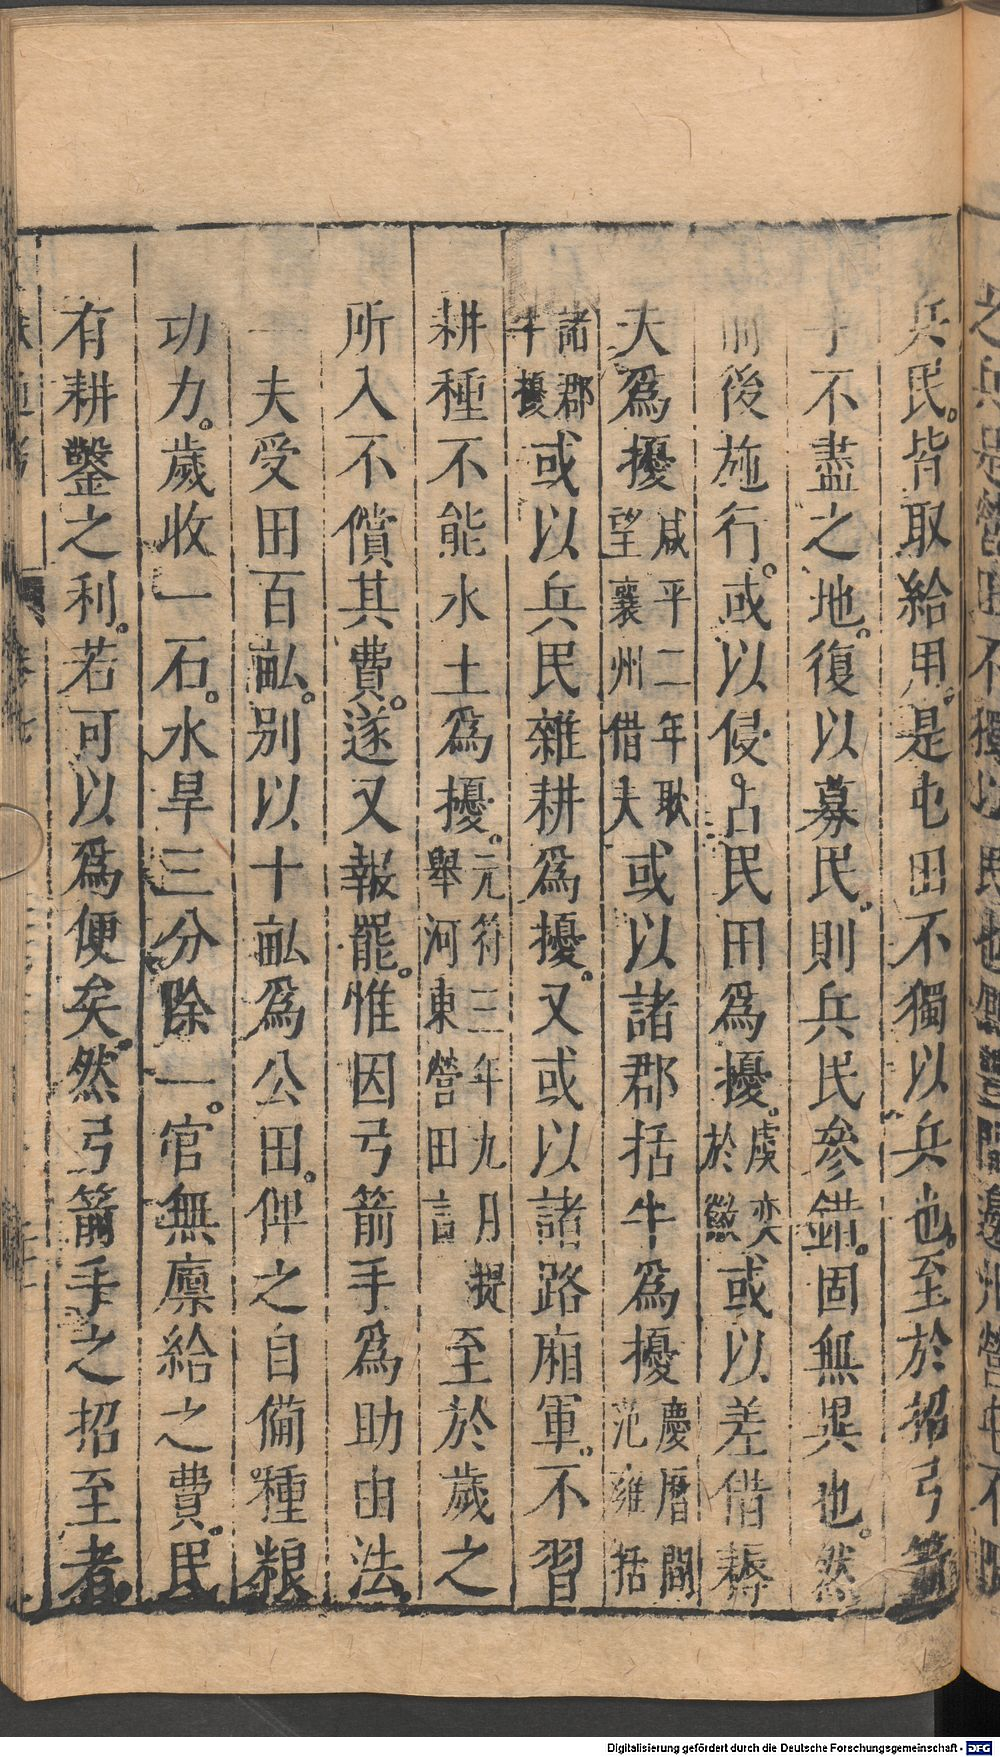 兵民。皆取給用。是屯田不獨以兵也。至於招弓箭
手不盡之地。復以募民。則兵民參錯。固無異也。然
前後施行。或以侵占民田爲擾。虞奕於懲或以差借耨
夫爲擾咸平二年耿望襄州借夫或以諸郡括牛爲擾慶曆間范雍括
諸郡牛擾或以兵民雜耕爲擾。又或以諸路廂軍。不習
耕種不能水土爲擾。元符三年九月提舉河東營田言至於歲之
所入不償其費。遂又報罷。惟因弓箭手爲助由法。
一夫受田百畝。別以十畝爲公田。俾之自備種粮
功力。歲收一石。水旱三分除一。官無廩給之費。民
有耕鑿之利。若可以爲便矣。然弓箭手之招至者。
Digitalisierung gefördert durch die Deutsche Forschungsgemeinschaft - DFG